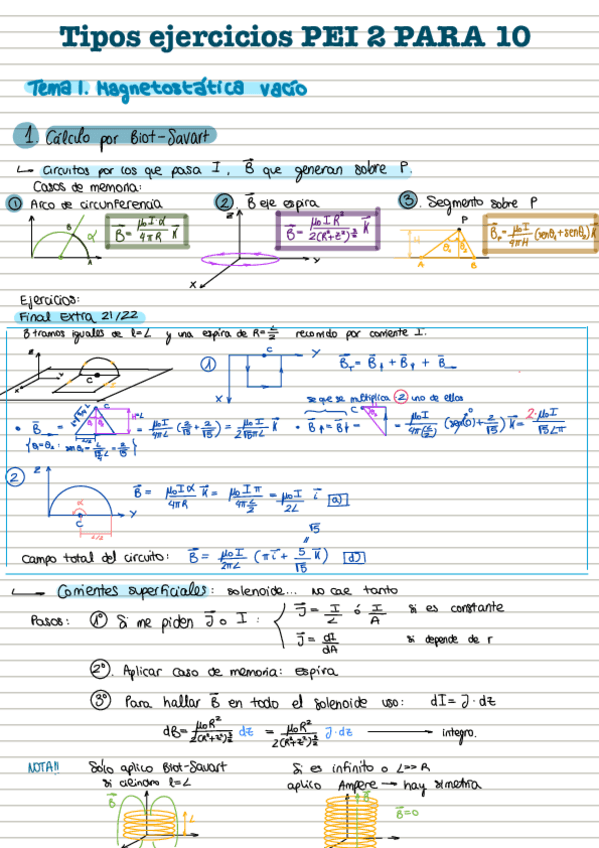 Tipos ejercicios PEI 2 PARA 10
Tema 1. Magnetostática vacío
1. Cálculo por Biot-Savart
↳ Circuitos por los que pasa I, B⃗ que generan sobre P.
Casos de memoria:
① Arco de circunferencia
B⃗ = μ₀I·α/4πR K⃗
B
α
A
② B⃗ eje espira
B⃗ = μ₀IR²/2(R²+z²)^(3/2) K⃗
z
Y
X
③. Segmento sobre P
B⃗ₚ = μ₀I/4πH (senθ₁+senθ₂)K⃗
P
H
θ₁ θ₂
A B
Ejercicios:
Final Extra 21/22
8 tramos iguales de l=L y una espira de R=L/2 recorrido por corriente I.
C
① C Y
X
C
H=L
θ₁ θ₂
• B⃗ = μ₀I/4πL (2/√5 + 2/√5) = μ₀I/2√5πL K⃗
• B⃗↑ = B⃗↓ =
se que se multiplica ·2 uno de ellos
= μ₀I/4π(L/2) (sen0° + 2/√5) K⃗ = 2·μ₀I/√5Lπ
② z
α
C Y
L/2
B⃗ = μ₀Iα/4πR K⃗ = μ₀Iπ/4π L/2 = μ₀I/2L i⃗ [a]
√5
"
campo total del circuito: B⃗ = μ₀I/2πL (πi⃗ + 5/√5 K⃗) [d]
↳ Corrientes superficiales: solenoide... no cae tanto
Pasos: 1º Si me piden J⃗ o I:
J⃗ = I/L ó I/A si es constante
J⃗ = dI/dA si depende de r
2º. Aplicar caso de memoria: espira
3º Para hallar B⃗ en todo el solenoide uso: dI = J·dz
dB = μ₀R²/2(R²+z²)^(3/2) dz = μ₀R²/2(R²+z²)^(3/2) J·dz → integro.
NOTA!! Sólo aplico Biot-Savart
si cilindro l=L
Si es infinito o L>>R
aplico Ampere → hay simetría
B⃗
L
B⃗
B⃗=0